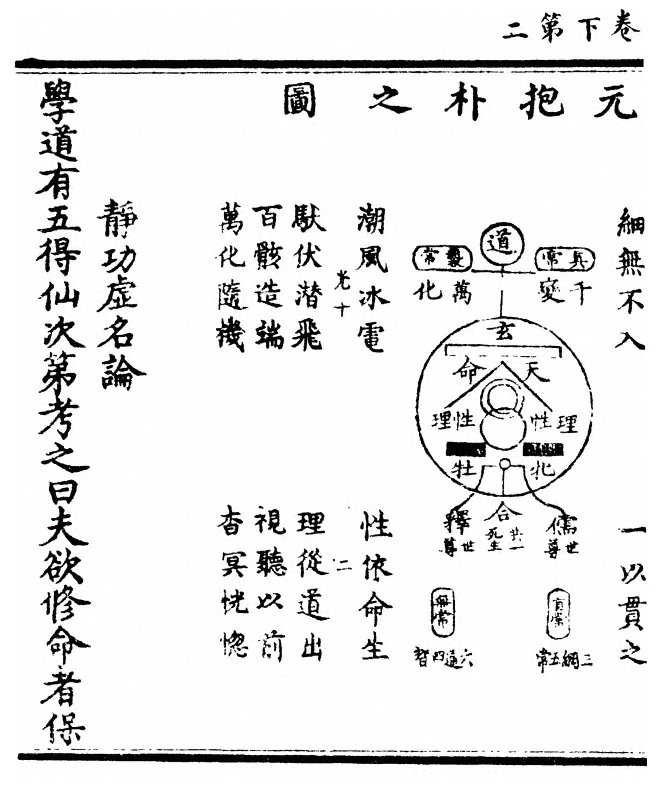 卷下第二
元抱朴之圖
細無不入
一以貫之
道
真常
襲常
千變
萬化
玄
天
命
性理
性理
牝
牡
儒
世尊
合
共一
死生
釋
世尊
有常
無常
三綱五常
六通四智
潮風冰電
性依命生
光十
二
馱伏潛飛
理從道出
百骸造端
視聽以前
萬化隨機
杳冥恍惚
靜功虛名論
學道有五得仙次第考之曰夫欲修命者保